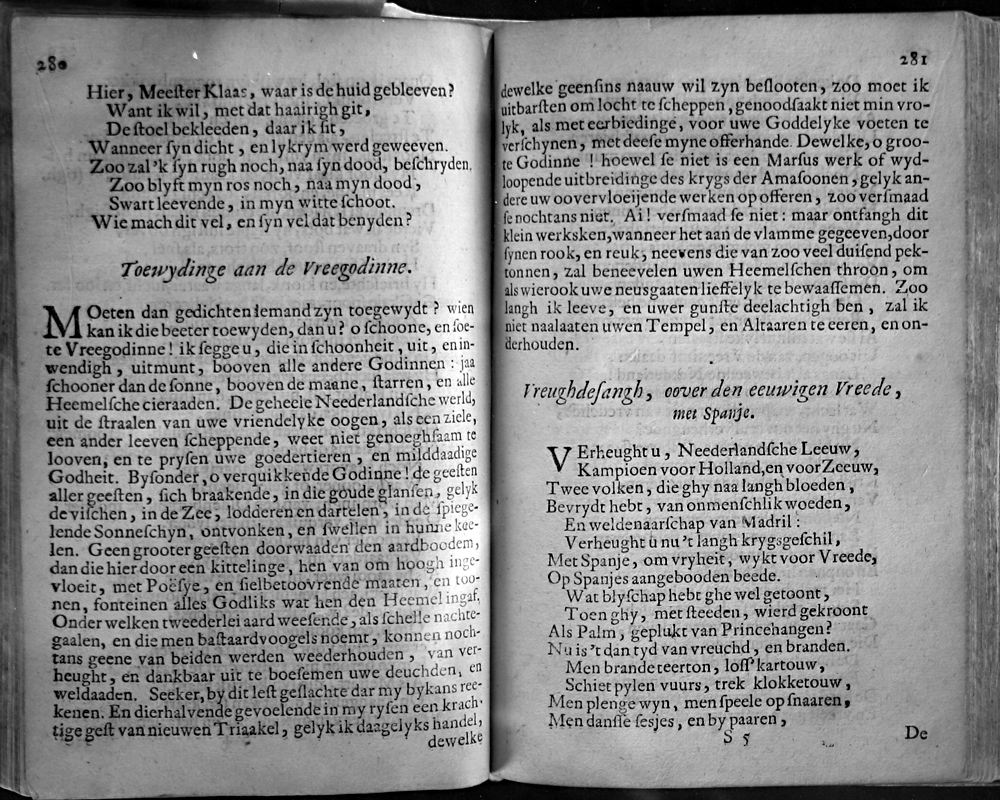 280
Hier, Meeſter Klaas, waar is de huid gebleeven?
Want ik wil, met dat haairigh git,
De ſtoel bekleeden, daar ik ſit,
Wanneer ſyn dicht, en lykrym werd geweeven.
Zoo zal 'k ſyn rugh noch, naa ſyn dood, beſchryden.
Zoo blyft myn ros noch, naa myn dood,
Swart leevende, in myn witte ſchoot.
Wie mach dit vel, en ſyn vel dat benyden?
Toewydinge aan de Vreegodinne.
MOeten dan gedichten iemand zyn toegewydt? wien
kan ik die beeter toewyden, dan u? o ſchoone, en ſoe-
te Vreegodinne! ik ſegge u, die in ſchoonheit, uit, en in-
wendigh, uitmunt, booven alle andere Godinnen: jaa
ſchooner dan de ſonne, booven de maane, ſtarren, en alle
Heemelſche cieraaden. De geheele Neederlandſche werld,
uit de ſtraalen van uwe vriendelyke oogen, als een ziele,
een ander leeven ſcheppende, weet niet genoeghſaam te
looven, en te pryſen uwe goedertieren, en milddaadige
Godheit. Byſonder, o verquikkende Godinne! de geeſten
aller geeſten, ſich braakende, in die goude glanſen, gelyk
de viſchen, in de Zee, lodderen en dartelen, in de ſpiege-
lende Sonneſchyn, ontvonken, en ſwellen in hunne kee-
len. Geen grooter geeſten doorwaaden den aardboodem,
dan die hier door een kittelinge, hen van om hoogh inge-
vloeit, met Poëſye, en ſielbetoovrende maaten, en too-
nen, fonteinen alles Godliks wat hen den Heemel ingaf.
Onder welken tweederlei aard weeſende, als ſchelle nachte-
gaalen, en die men baſtaardvoogels noemt, konnen noch-
tans geene van beiden werden weederhouden, van ver-
heught, en dankbaar uit te boeſemen uwe deuchden, en
weldaaden. Seeker, by dit leſt geſlachte dar my bykans ree-
kenen. En dierhalven de gevoelende in my ryſen een krach-
tige geſt van nieuwen Triaakel, gelyk ik daagelyks handel,
dewelke
281
dewelke geenſins naauw wil zyn beſlooten, zoo moet ik
uitbarſten om locht te ſcheppen, genoodſaakt niet min vro-
lyk, als met eerbiedinge, voor uwe Goddelyke voeten te
verſchynen, met deeſe myne offerhande. Dewelke, o groo-
te Godinne! hoewel ſe niet is een Marſus werk of wyd-
loopende uitbreidinge des krygs der Amaſoonen, gelyk an-
dere uw oovervloeijende werken op offeren, zoo verſmaad
ſe nochtans niet. Ai! verſmaad ſe niet: maar ontfangh dit
klein werksken, wanneer het aan de vlamme gegeeven, door
ſynen rook, en reuk, neevens die van zoo veel duiſend pek-
tonnen, zal beneevelen uwen Heemelſchen throon, om
als wierook uwe neusgaaten lieffelyk te bewaaſſemen. Zoo
langh ik leeve, en uwer gunſte deelachtigh ben, zal ik
niet naalaaten uwen Tempel, en Altaaren te eeren, en on-
derhouden.
Vreughdeſangh, oover den eeuwigen Vreede,
met Spanje.
VErheught u, Neederlandſche Leeuw,
Kampioen voor Holland, en voor Zeeuw,
Twee volken, die ghy naa langh bloeden,
Bevrydt hebt, van onmenſchlik woeden,
En weldenaarſchap van Madril:
Verheught u nu 't langh krygsgeſchil,
Met Spanje, om vryheit, wykt voor Vreede,
Op Spanjes aangebooden beede.
Wat blyſchap hebt ghe wel getoont,
Toen ghy, met ſteeden, wierd gekroont
Als Palm, geplukt van Princehangen?
Nu is 't dan tyd van vreuchd, en branden.
Men brande teerton, loſſ' kartouw,
Schiet pylen vuurs, trek klokketouw,
Men plenge wyn, men ſpeele op ſnaaren,
Men danſſe ſesjes, en by paaren,
S 5
De